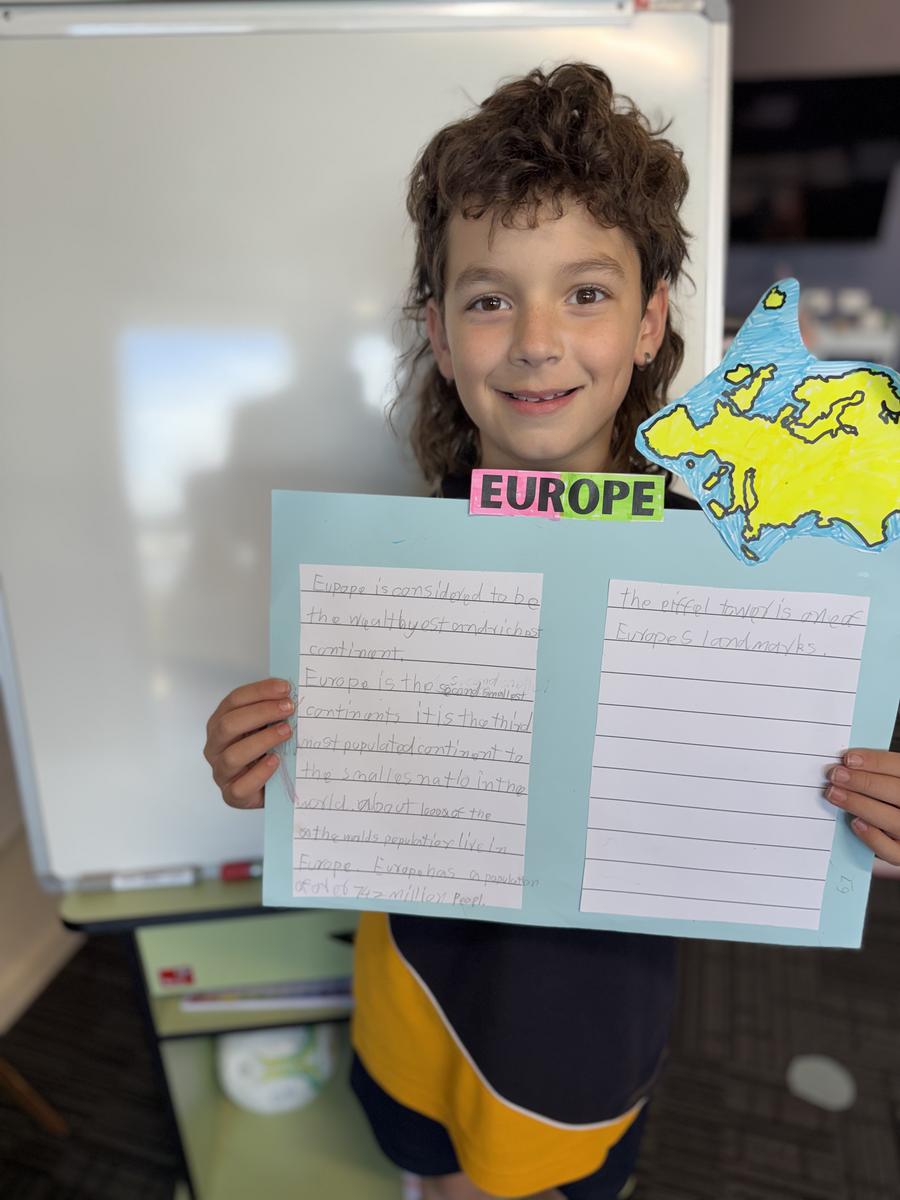 EUROPE
Europe is considered to be
the wealthyest and richest
continent.
Europe is the second smallest
continents it is the third
most populated continent to
the smalles natio in the
world. about of the
population live in
Europe. Europe has a population
of 742 million peopl.
the eiffel tower is one of
Europes landmarks.